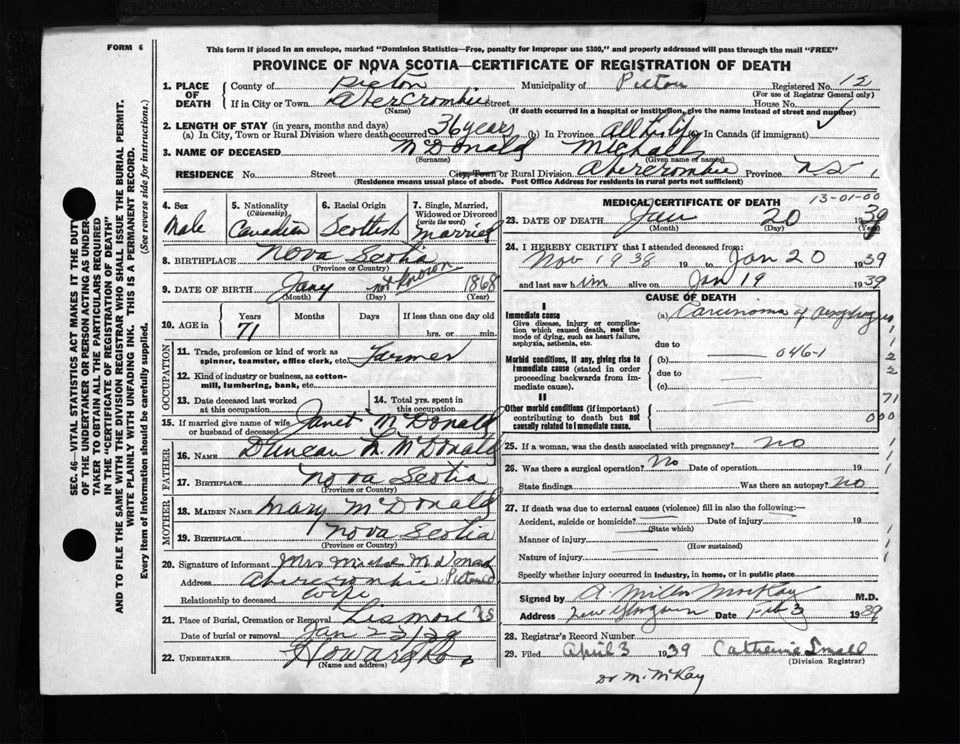 FORM 6
This form if placed in an envelope, marked "Dominion Statistics—Free, penalty for improper use $300," and properly addressed will pass through the mail "FREE"
PROVINCE OF NOVA SCOTIA—CERTIFICATE OF REGISTRATION OF DEATH
1. PLACE OF DEATH
County of Pictou Municipality of Pictou Registered No. 12
(For use of Registrar General only)
If in City or Town Abercrombie Street House No.
(Name) (If death occurred in a hospital or institution, give the name instead of street and number)
2. LENGTH OF STAY (in years, months and days)
(a) In City, Town or Rural Division where death occurred 36 years (b) In Province All his life (c) In Canada (if immigrant)
3. NAME OF DECEASED McDonald Michael
(Surname) (Given name or names)
RESIDENCE No. Street City, Town or Rural Division Abercrombie Province N.S.
(Residence means usual place of abode. Post Office Address for residents in rural parts not sufficient)
4. Sex
Male
5. Nationality
(Citizenship)
Canadian
6. Racial Origin
Scottish
7. Single, Married, Widowed or Divorced
(write the word)
Married
8. BIRTHPLACE Nova Scotia
(Province or Country)
9. DATE OF BIRTH Jany not known 1868
(Month) (Day) (Year)
10. AGE in
Years Months Days If less than one day
71 hrs. or min.
OCCUPATION
11. Trade, profession or kind of work as spinner, teamster, office clerk, etc. Farmer
12. Kind of industry or business, as cotton-mill, lumbering, bank, etc.
13. Date deceased last worked at this occupation
14. Total yrs. spent in this occupation
15. If married give name of wife or husband of deceased Janet McDonald
FATHER
16. NAME Duncan McDonald
17. BIRTHPLACE Nova Scotia
(Province or Country)
MOTHER
18. MAIDEN NAME Mary McDonald
19. BIRTHPLACE Nova Scotia
(Province or Country)
20. Signature of informant Mrs Michael McDonald
Address Abercrombie Pictou Co
Relationship to deceased Wife
21. Place of Burial, Cremation or Removal Lismore NS
Date of burial or removal Jan 23/39
22. UNDERTAKER Howard
(Name and address)
MEDICAL CERTIFICATE OF DEATH 13-01-00
23. DATE OF DEATH Jan 20 1939
(Month) (Day) (Year)
24. I HEREBY CERTIFY that I attended deceased from:
Nov 1938 19 to Jan 20 1939
and last saw him alive on Jan 19 1939
CAUSE OF DEATH
I
Immediate cause
Give disease, injury or complication which caused death, not the mode of dying, such as heart failure, asphyxia, asthenia, etc.
(a) Carcinoma of Oesophagus
due to
Morbid conditions, if any, giving rise to immediate cause (stated in order proceeding backwards from immediate cause).
(b) 046-1
due to
(c)
II
Other morbid conditions (if important) contributing to death but not causally related to immediate cause.
1
1
2
2
71
000
25. If a woman, was the death associated with pregnancy? no
26. Was there a surgical operation? No Date of operation 19
State findings Was there an autopsy? no
27. If death was due to external causes (violence) fill in also the following:—
Accident, suicide or homicide? Date of injury 19
(State which)
Manner of injury
(How sustained)
Nature of injury
Specify whether injury occurred in industry, in home, or in public place
Signed by A Miller MacKay M.D.
Address New Glasgow Date Feb 3 1939
28. Registrar's Record Number
29. Filed April 3 1939 Catherine Small
(Division Registrar)
Dr M. McKay
SEC. 46—VITAL STATISTICS ACT MAKES IT THE DUTY OF THE UNDERTAKER OR PERSON ACTING AS UNDERTAKER TO OBTAIN ALL THE PARTICULARS REQUIRED IN THE "CERTIFICATE OF REGISTRATION OF DEATH" AND TO FILE THE SAME WITH THE DIVISION REGISTRAR WHO SHALL ISSUE THE BURIAL PERMIT.
WRITE PLAINLY WITH UNFADING INK. THIS IS A PERMANENT RECORD.
Every item of information should be carefully supplied. (See reverse side for instructions.)